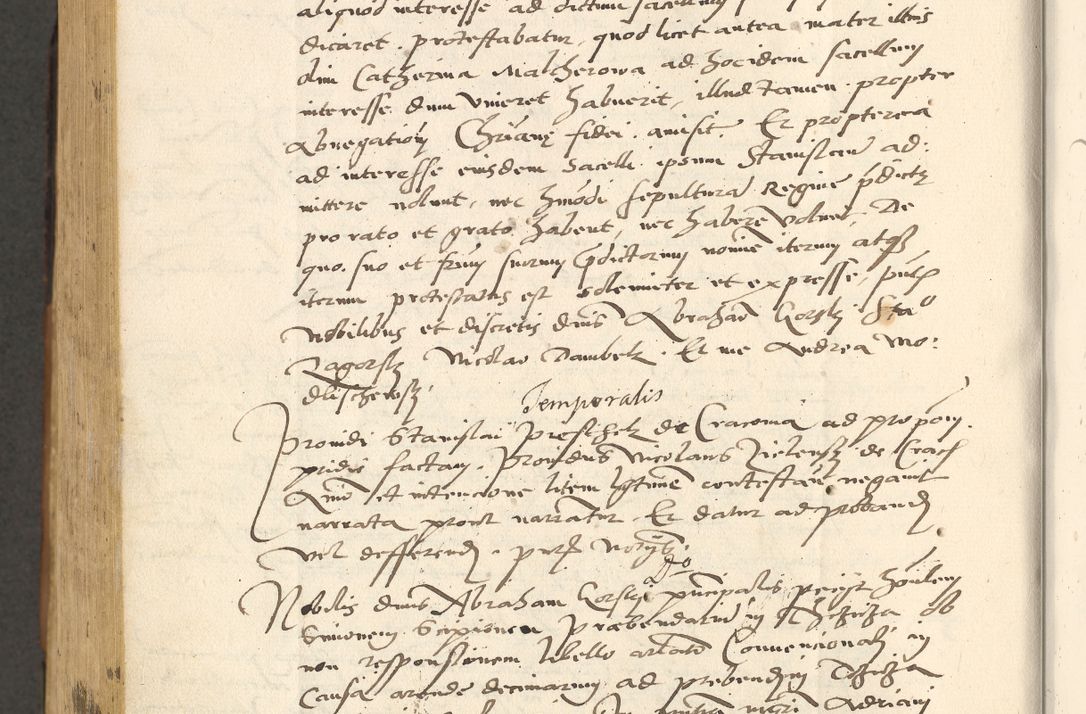 aliquod interesse ad dictum sacellum
dicaret. protestabatur, quod licet antea mater illius
olim Catherina Malcherowa ad hocidem sacellum
interesse dum viveret habuerit, illud tamen propter
abnegationem Christianę fidei amisit. Et propterea
ad interesse eiusdem sacelli ipsum Stanislaum ad:
mittere nolunt, nec hmodi sepultura Regine pdicte
pro rato et grato habent, nec habere volunt. De
quo suo et frum suorum pdictorum nomine iterum atqz
iterum protestatus est solenniter et expresse, pntibus
Nobilibus et discretis dnis Abraham Gorski Stao
Zagorski Nicolao Dambek. Et me Andrea Mo:
dlischewski
Temporalis
Providi Stanislai Preschek de Cracovia ad proponem
pridie factam. Providus Nicolaus Zielensk de Crac
animo et intencione litem legitime contestan negavit
narrata prout narrantur. Et datur ad proband
vel defferend. pntibus
Nobilis dnus Abraham Gorski principalis
Simonem Scipionem Præbendarium in ob
non responsionem libello articulato Conventionali in
Causa arende decimarum ad prebendam
Adriani